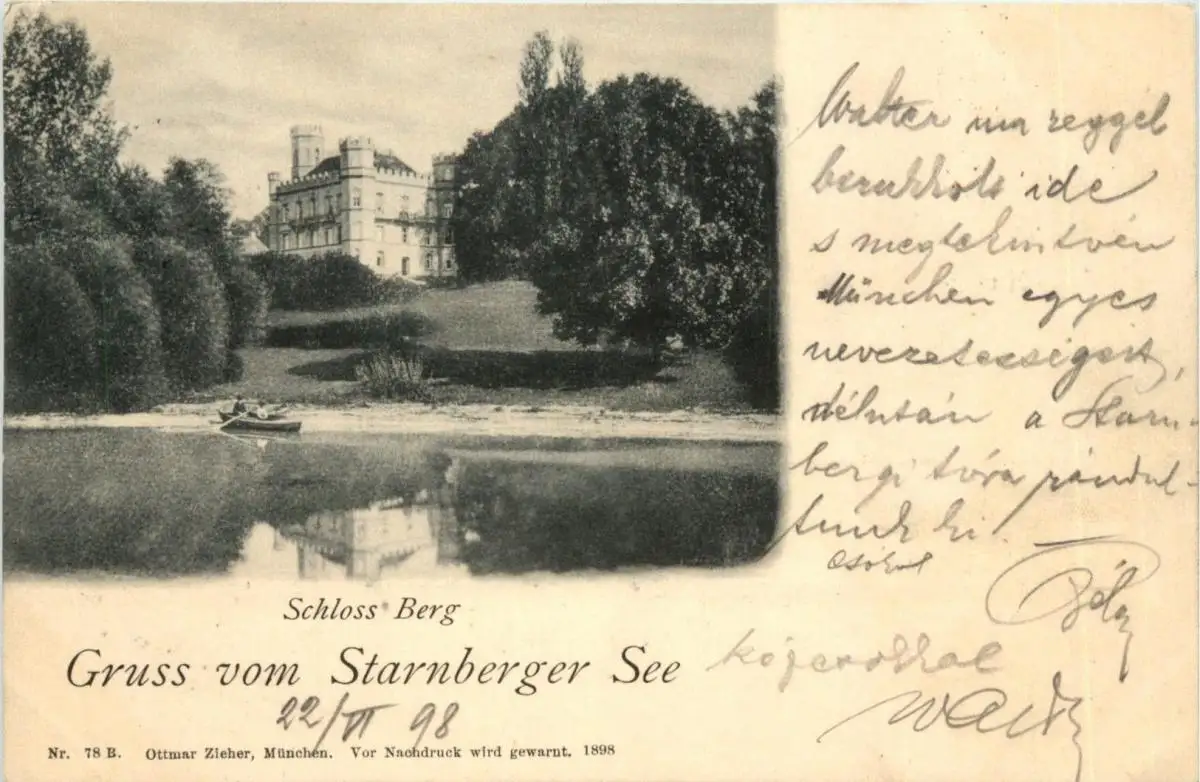 Walter ma reggel
berukkolt ide
s megtekintvén
München egyes
nevezetességeit,
délután a Starn-
bergi tóra rándul-
tunk ki.
csókol
Béla
Schloss Berg
Gruss vom Starnberger See
22/VI 98
Nr. 78 B. Ottmar Zieher, München. Vor Nachdruck wird gewarnt. 1898